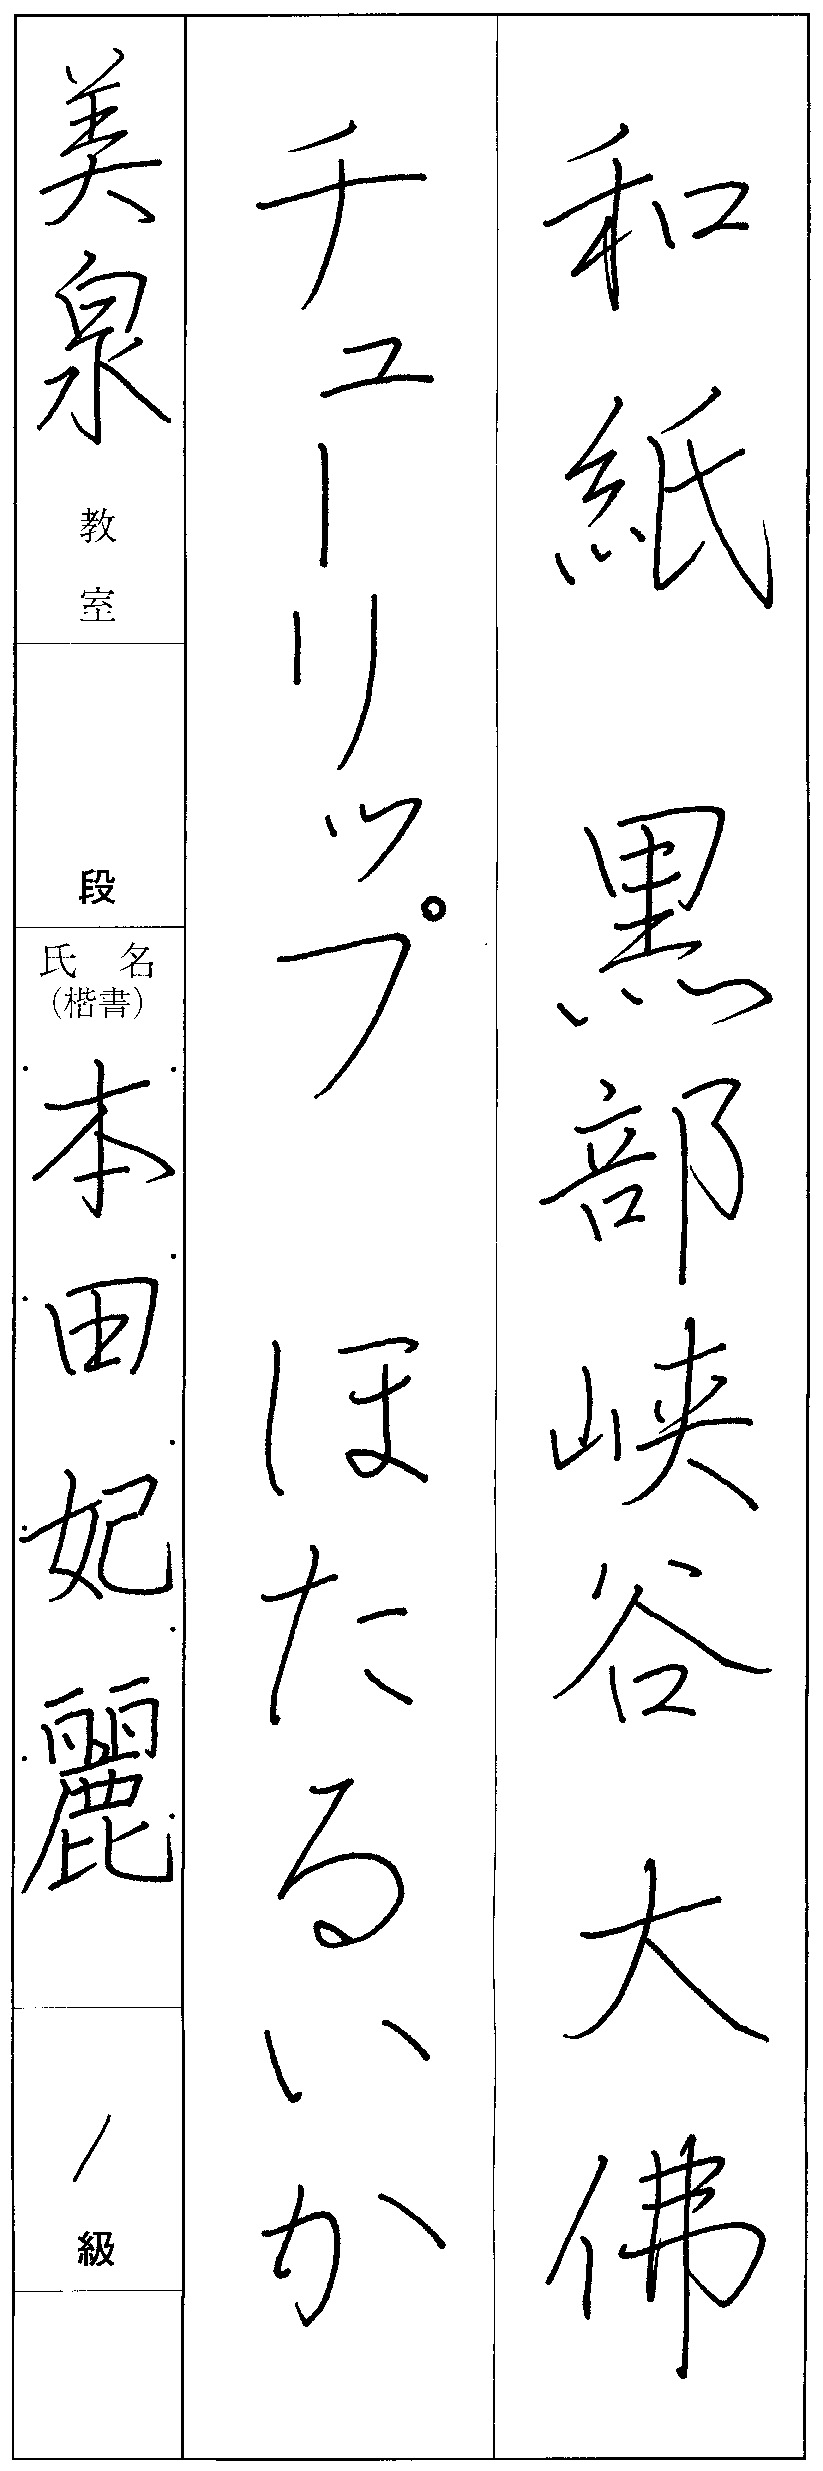 和紙 黒部峡谷 大佛
チューリップ ほたるいか
美泉教室
段
氏名
(楷書)
本田妃麗
1級